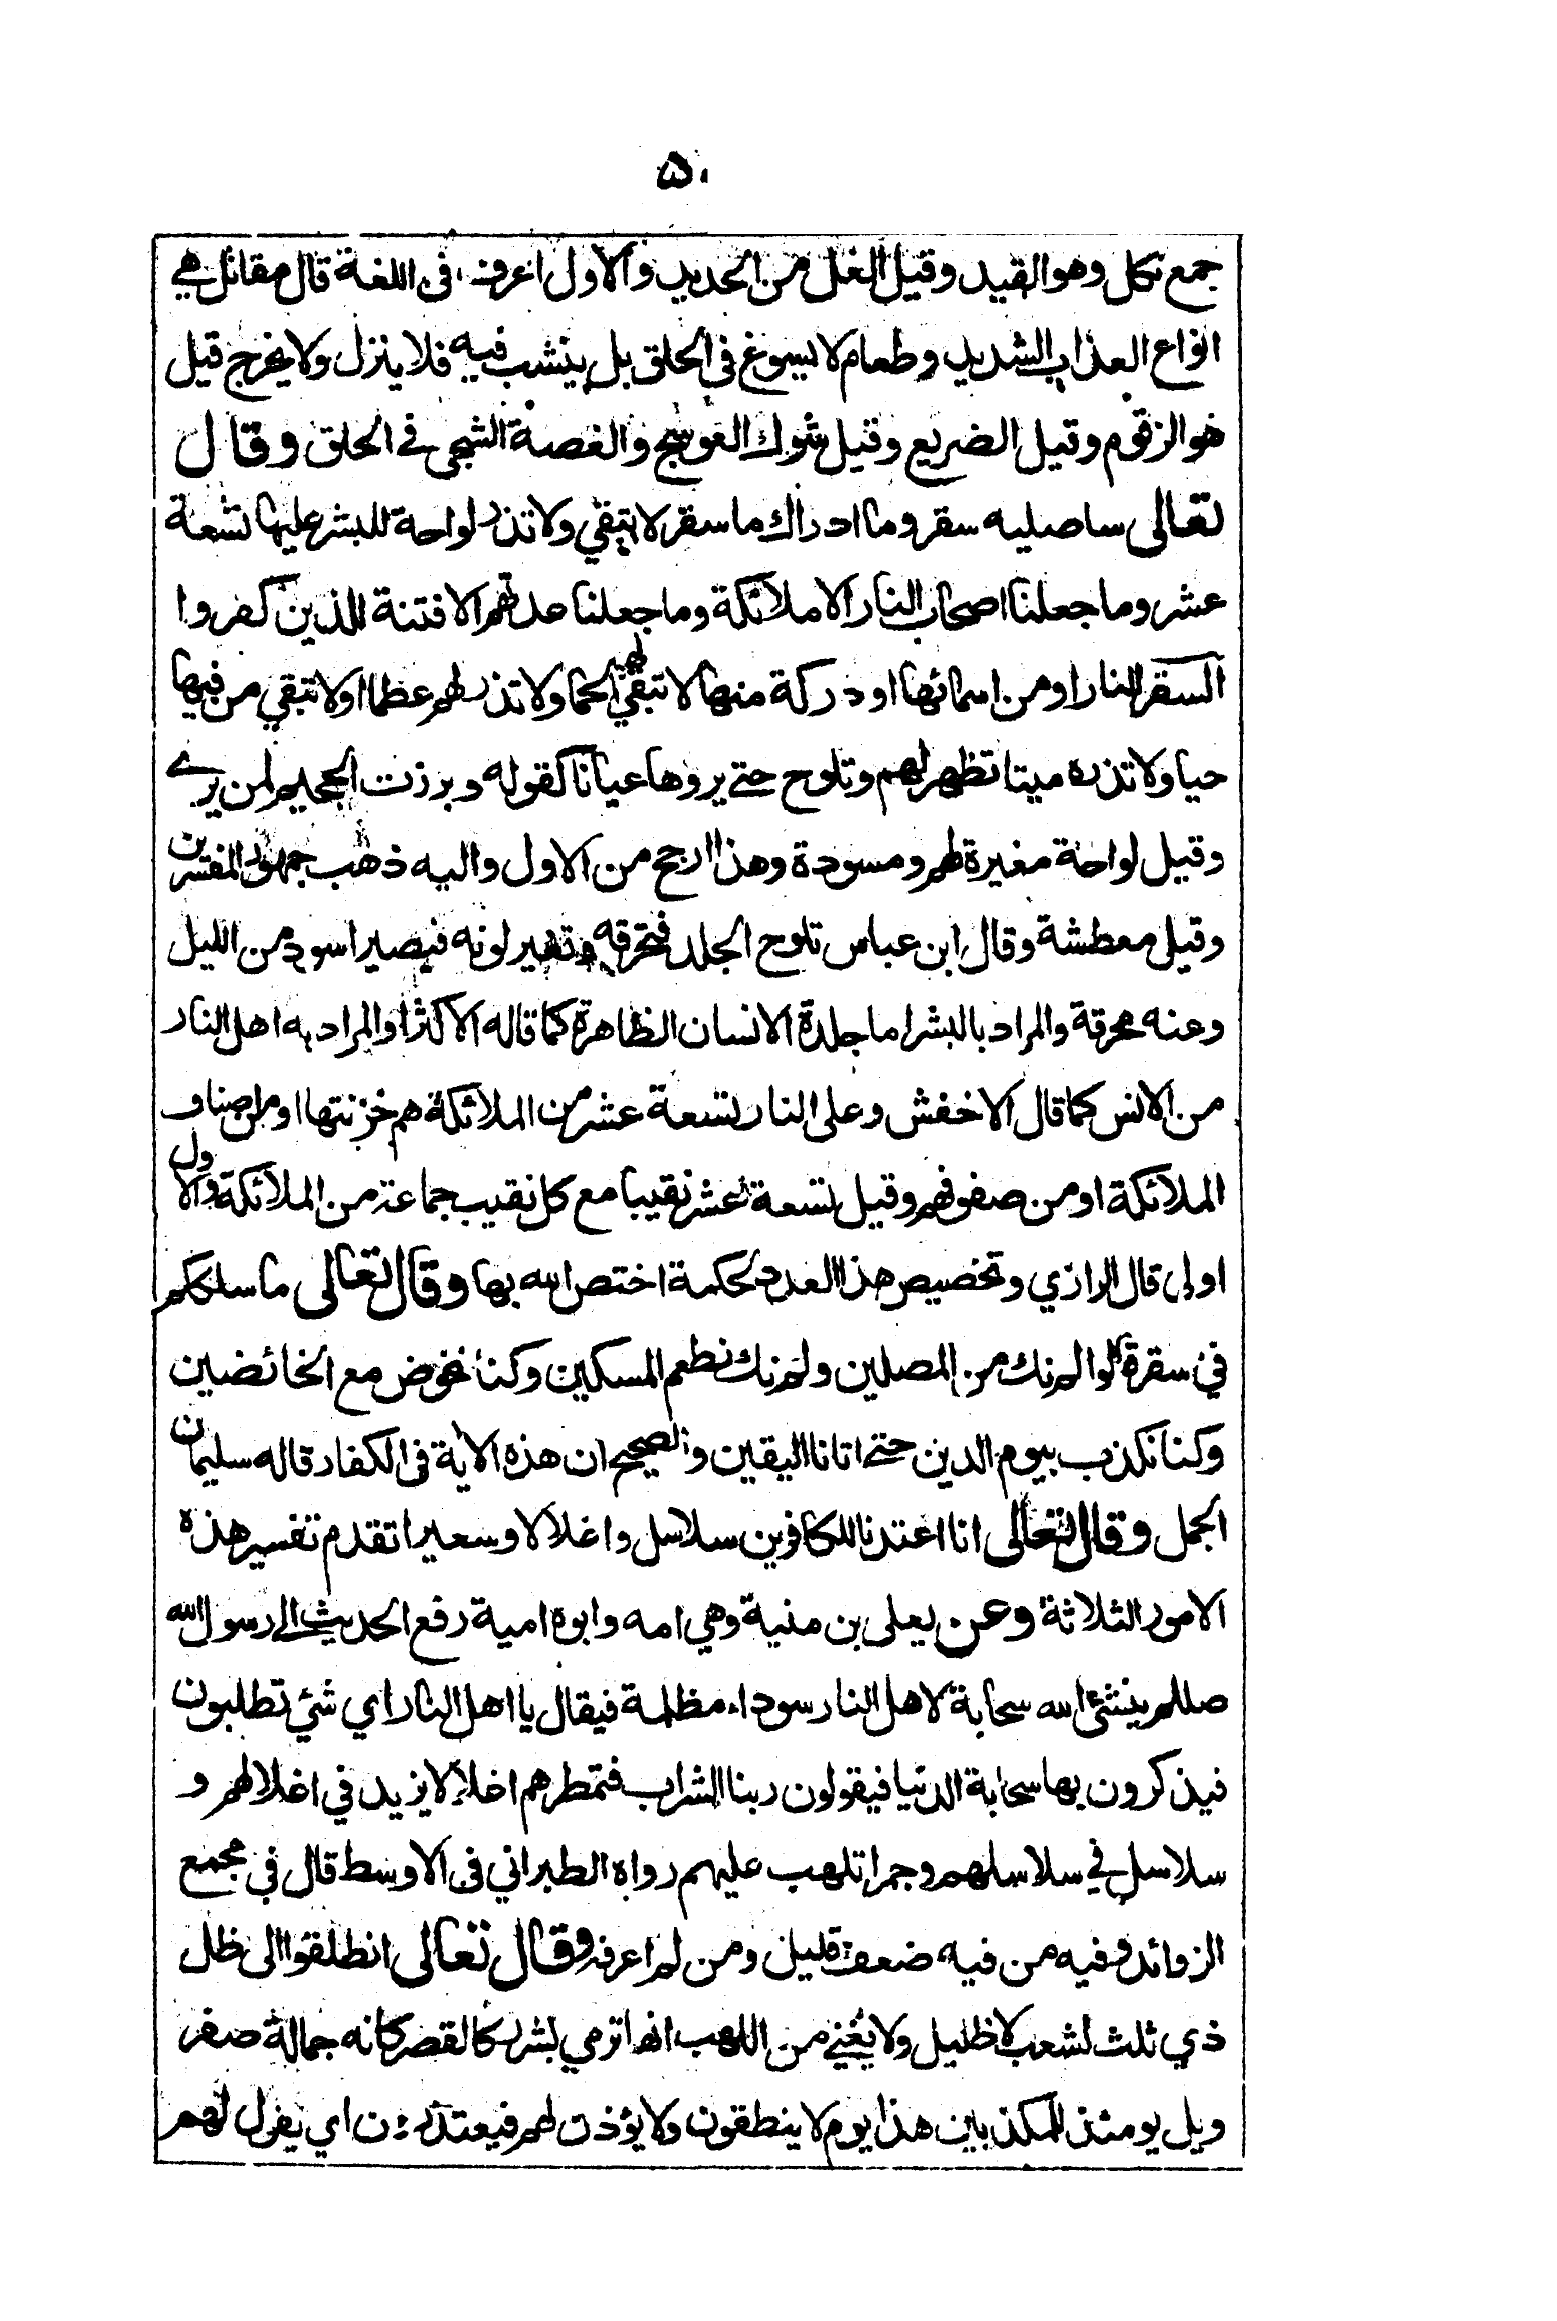 ۵۰
جمع نكل وهو القيد وقيل الغل من الحديد والاول اعرف في اللغة قال مقاتل هي
انواع العذاب الشديد وطعام لا يسوغ في الحلق بل ينشب فيه فلا ينزل ولا يخرج قيل
هو الزقوم وقيل الضريع وقيل شوك العوسج والغصة الشجى في الحلق وقال
تعالى ساصليه سقر وما ادراك ما سقر لا تبقي ولا تذر لواحة للبشر عليها تسعة
عشر وما جعلنا اصحاب النار الا ملائكة وما جعلنا عدتهم الا فتنة للذين كفروا
السقر النار او من اسمائها او دركة منها لا تبقي لهم لحما ولا تذر لهم عظما او لا تبقي من فيها
حيا ولا تذره ميتا تظهر لهم وتلوح حتے يروها عيانا كقوله وبرزت الجحيم لمن يرے
وقيل لواحة مغيرة لهم ومسودة وهذا ارجح من الاول واليه ذهب جمهور المفسرين
وقيل معطشة وقال ابن عباس تلوح الجلد فتحرقه وتغير لونه فيصير اسود من الليل
وعنه محرقة والمراد بالبشر اما جلدة الانسان الظاهرة كما قاله الاكثر او المراد به اهل النار
من الانس كما قال الاخفش وعلى النار تسعة عشر من الملائكة هم خزنتها او من اصناف
الملائكة او من صفوفهم وقيل تسعة عشر نقيبا مع كل نقيب جماعة من الملائكة والاول
اولى قال الرازي وتخصيص هذا العدد لحكمة اختص الله بها وقال تعالى ما سلككم
في سقر قالوا لم نك من المصلين ولم نك نطعم المسكين وكنا نخوض مع الخائضين
وكنا نكذب بيوم الدين حتے اتانا اليقين والصحيح ان هذه الاية في الكفار قاله سليمان
الجمل وقال تعالى انا اعتدنا للكافرين سلاسل واغلالا وسعيرا تقدم تفسير هذه
الامور الثلاثة وعن يعلى بن منية وهي امه وابوه امية رفع الحديث الى رسول الله
صللم ينشئ الله سحابة لاهل النار سوداء مظلمة فيقال يا اهل النار اي شئ تطلبون
فيذكرون بها سحابة الدنيا فيقولون ربنا الشراب فتمطرهم اغلالا يزيد في اغلالهم و
سلاسل في سلاسلهم وجمرا تلهب عليهم رواه الطبراني في الاوسط قال في مجمع
الزوائد وفيه من فيه ضعف قليل ومن لم اعرفه وقال تعالى انطلقوا الى ظل
ذي ثلث شعب لا ظليل ولا يغني من اللهب انها ترمي بشرر كالقصر كانه جمالة صفر
ويل يومئذ للمكذبين هذا يوم لا ينطقون ولا يؤذن لهم فيعتذرون اي يقول لهم